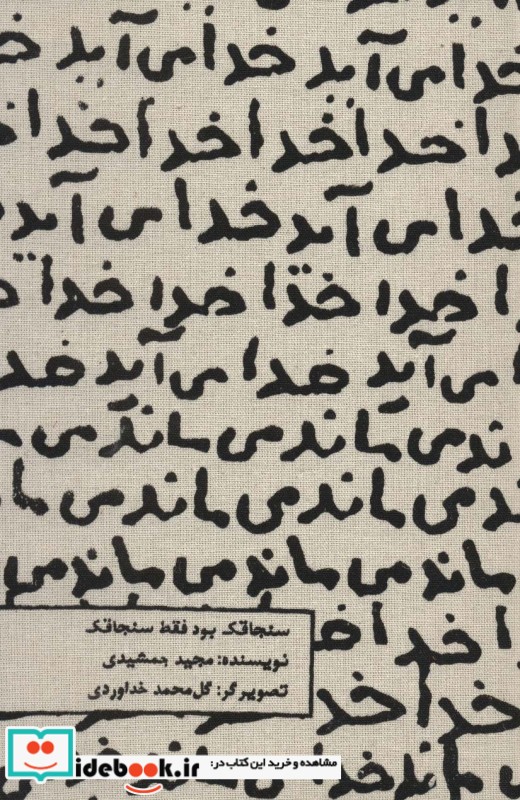 خدا می آید خدا می آید خ
ا خدا خدا خدا خدا
خدا می آید خدا می آید
ا خدا خدا خدا خدا
می آید خدا می آید خد
ند می ماند می ماند می
ند می ماند می ماند می ما
ماند می ماند می ماند می
ا خدا
سنجاقک بود فقط سنجاقک
نویسنده: مجید جمشیدی
تصویرگر: گل‌محمد خداوردی
خدا خد
مشاهده و خرید این کتاب در:
idebook.ir